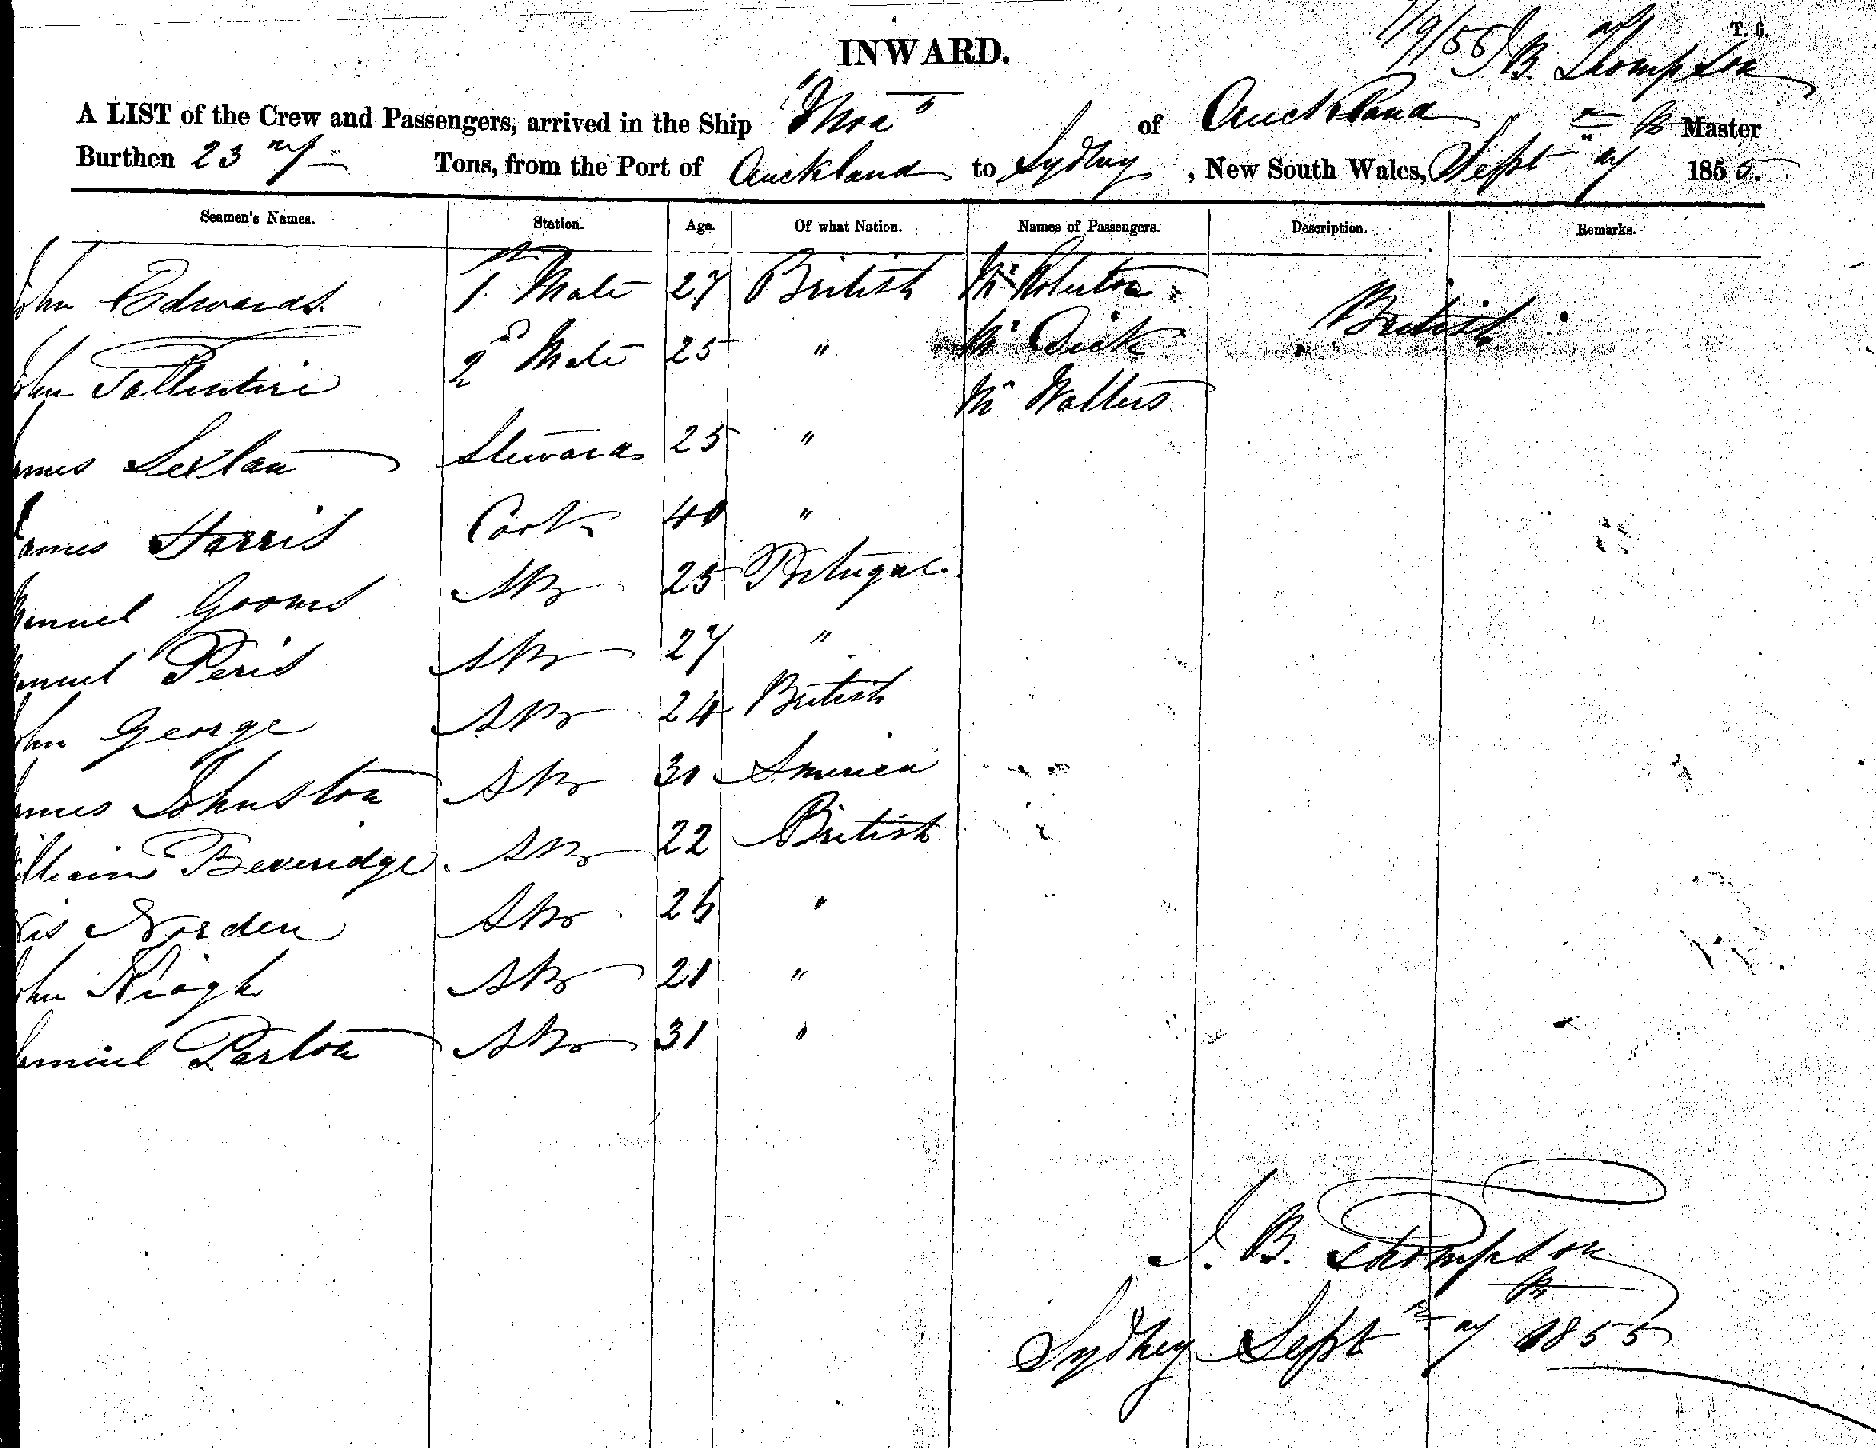 7/9/55 J B. Thompson
T. G.
INWARD.
A LIST of the Crew and Passengers, arrived in the Ship "Moa" of Auckland Master
Burthen 23 Tons, from the Port of Auckland to Sydney, New South Wales, Sept 7 1855.
Seamen's Names. Station. Age. Of what Nation. Names of Passengers. Description. Remarks.
ohn Edwards 1st Mate 27 British Mr Roberton British
ohn Tallentire 2d Mate 25 " Mr Dick
Mr Walters
ames Sexlan Steward 25 "
James Harris Cook 40 "
Manuel Gooms AB 25 Portugal
anuel Peris AB 27 "
ohn George AB 24 British
ames Johnston AB 30 America
illiam Beveridge AB 22 British
Norden AB 26 "
ohn Kiogh AB 21 "
Samuel Parton AB 31 "
J. B. Thompson
Sydney Sept 7 1855